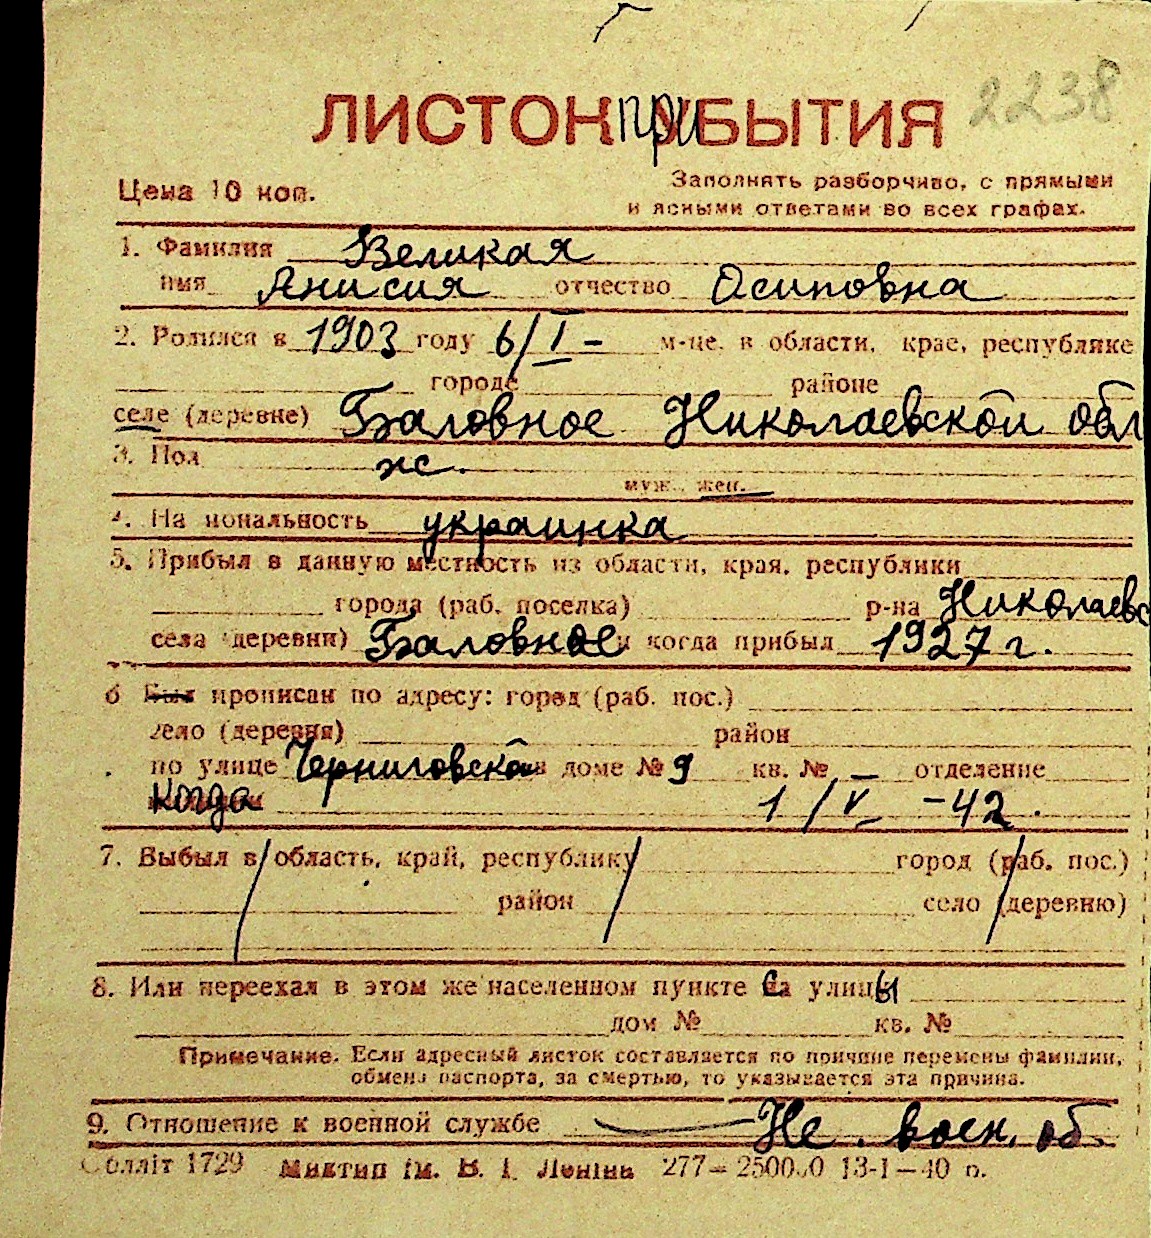 2238
ЛИСТОК прИБЫТИЯ
Цена 10 коп.
Заполнять разборчиво, с прямыми
и ясными ответами во всех графах.
1. Фамилия Великая
имя Анисия отчество Осиповна
2. Родился в 1903 году 6/I - м-це, в области, крае, республике
городе районе
селе (деревне) Баловное Николаевской обл
3. Пол ж.
муж., жен.
4. Национальность украинка
5. Прибыл в данную местность из области, края, республики
города (раб. поселка) р-на Николаевс
села (деревни) Баловное и когда прибыл 1927 г.
6 Был прописан по адресу: город (раб. пос.)
село (деревня) район
по улице Черниговской в доме № 9 кв. № — отделение
Когда 1/V -42.
7. Выбыл в область, край, республику город (раб. пос.)
район село (деревню)
8. Или переехал в этом же населенном пункте с улицы
дом № кв. №
Примечание. Если адресный листок составляется по причине перемены фамилии,
обмена паспорта, за смертью, то указывается эта причина.
9. Отношение к военной службе — Не воен. об.
Облліт 1729 Миктип ім. В. І. Леніна 277— 13-I—40 р.